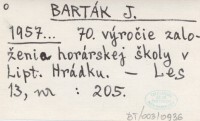 BARTÁK J.
1957... 70. výročie zalo-
ženia horárskej školy v
Lipt. Hrádku. — Les
13, nr : 205.
BT/003/0936